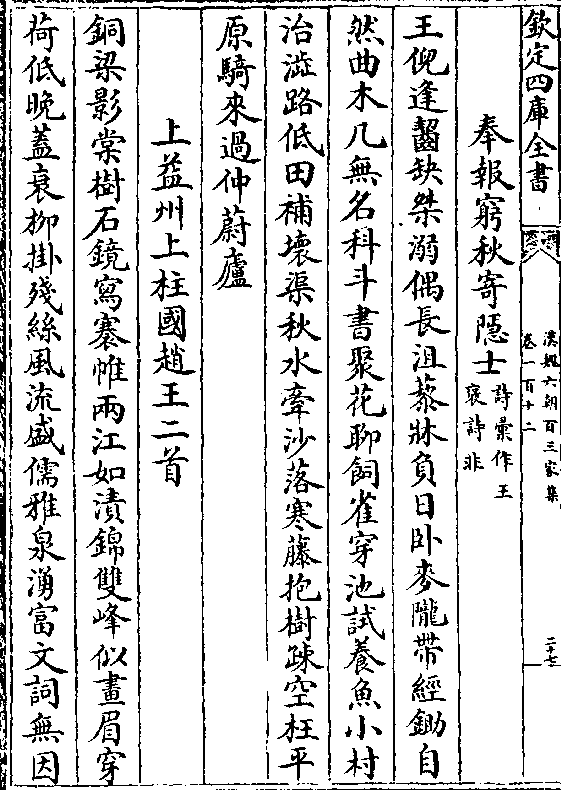 欽定四庫全書
漢魏六朝百三家集
卷一百十二
二十七
奉報窮秋寄隱士詩彙作王褒詩非
王倪逢齧缺桀溺偶長沮藜牀負日卧麥隴帶經鋤自
然曲木几無名科斗書聚花聊飼雀穿池試養魚小村
治澁路低田補壞渠秋水牽沙落寒藤抱樹疎空枉平
原騎來過仲蔚廬
上益州上柱國趙王二首
銅梁影棠樹石鏡寫褰帷兩江如漬錦雙峰似畫眉穿
荷低晚蓋衰柳掛殘絲風流盛儒雅泉湧富文詞無因